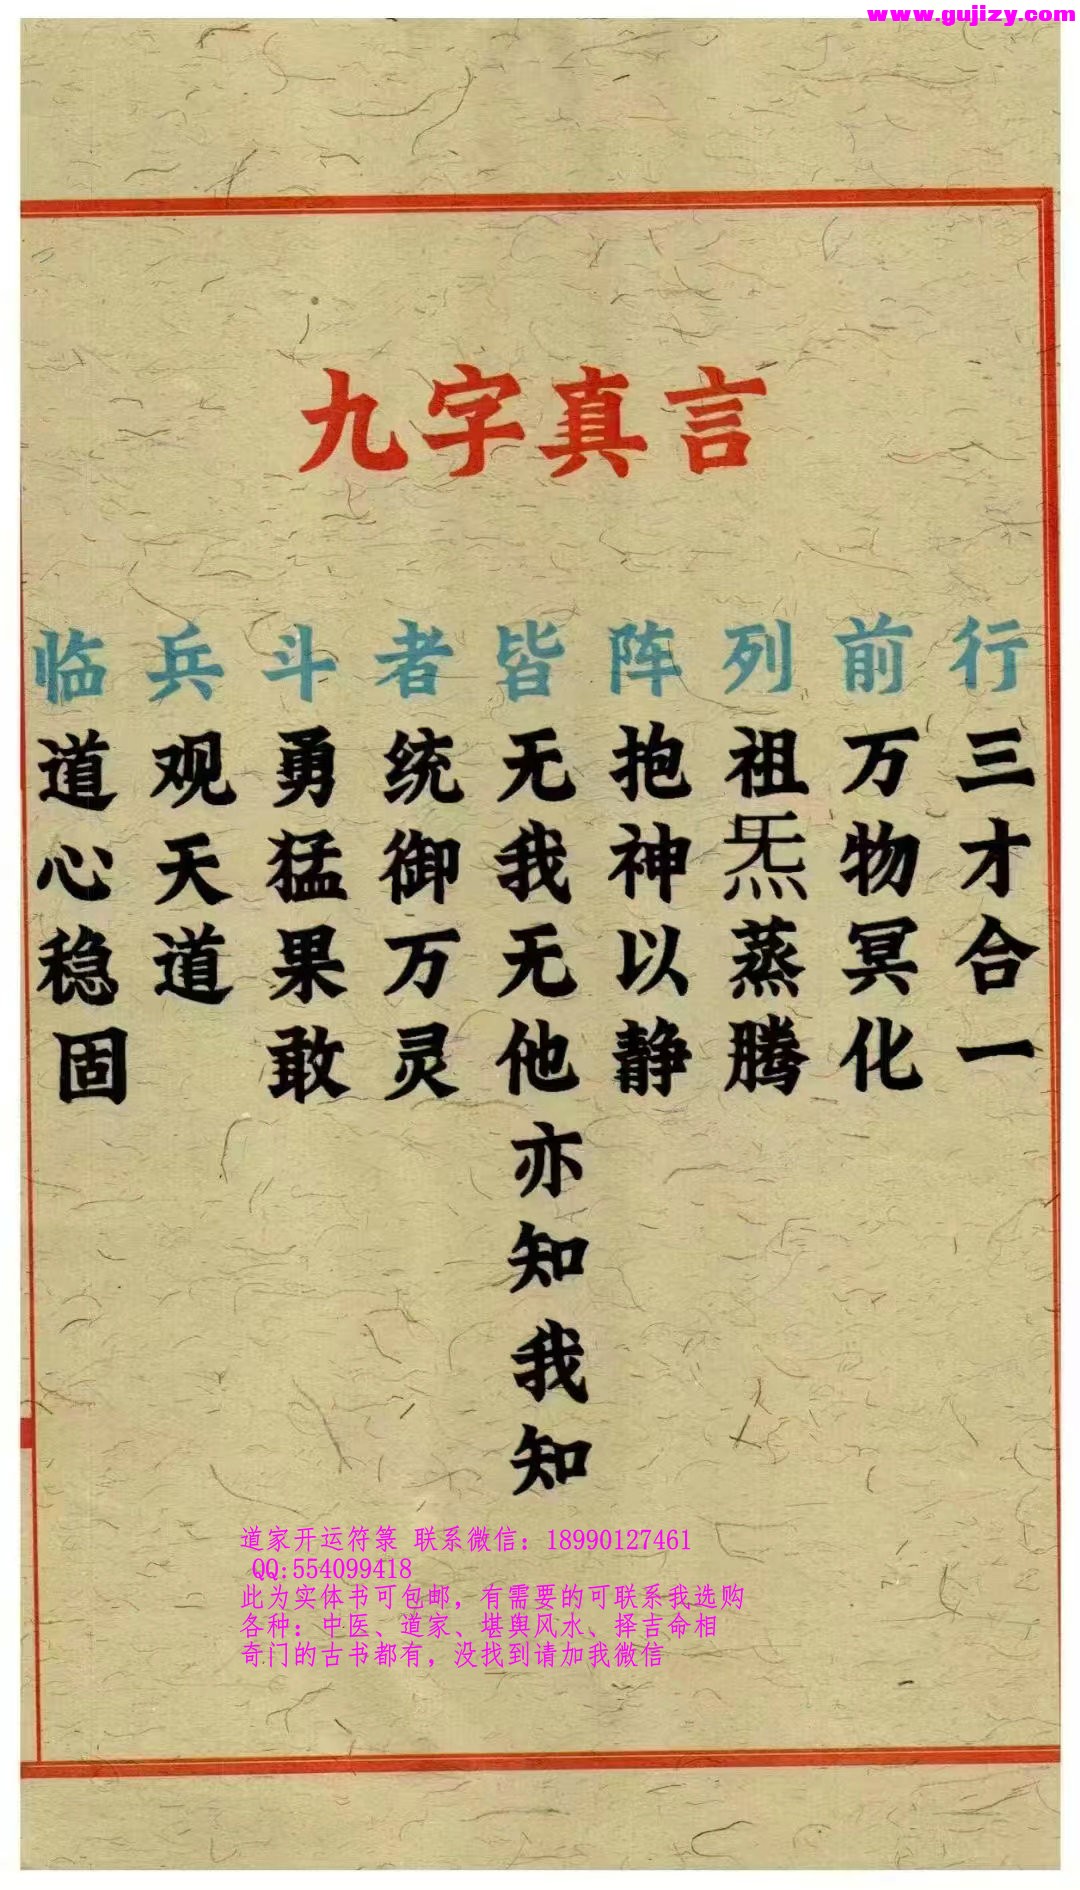 www.gujizy.com
九字真言
临 兵 斗 者 皆 阵 列 前 行
道心稳固
观天道
勇猛果敢
统御万灵
无我无他亦知我知
抱神以静
祖炁蒸腾
万物冥化
三才合一
道家开运符箓 联系微信：18990127461
QQ:554099418
此为实体书可包邮，有需要的可联系我选购
各种：中医、道家、堪舆风水、择吉命相
奇门的古书都有，没找到请加我微信